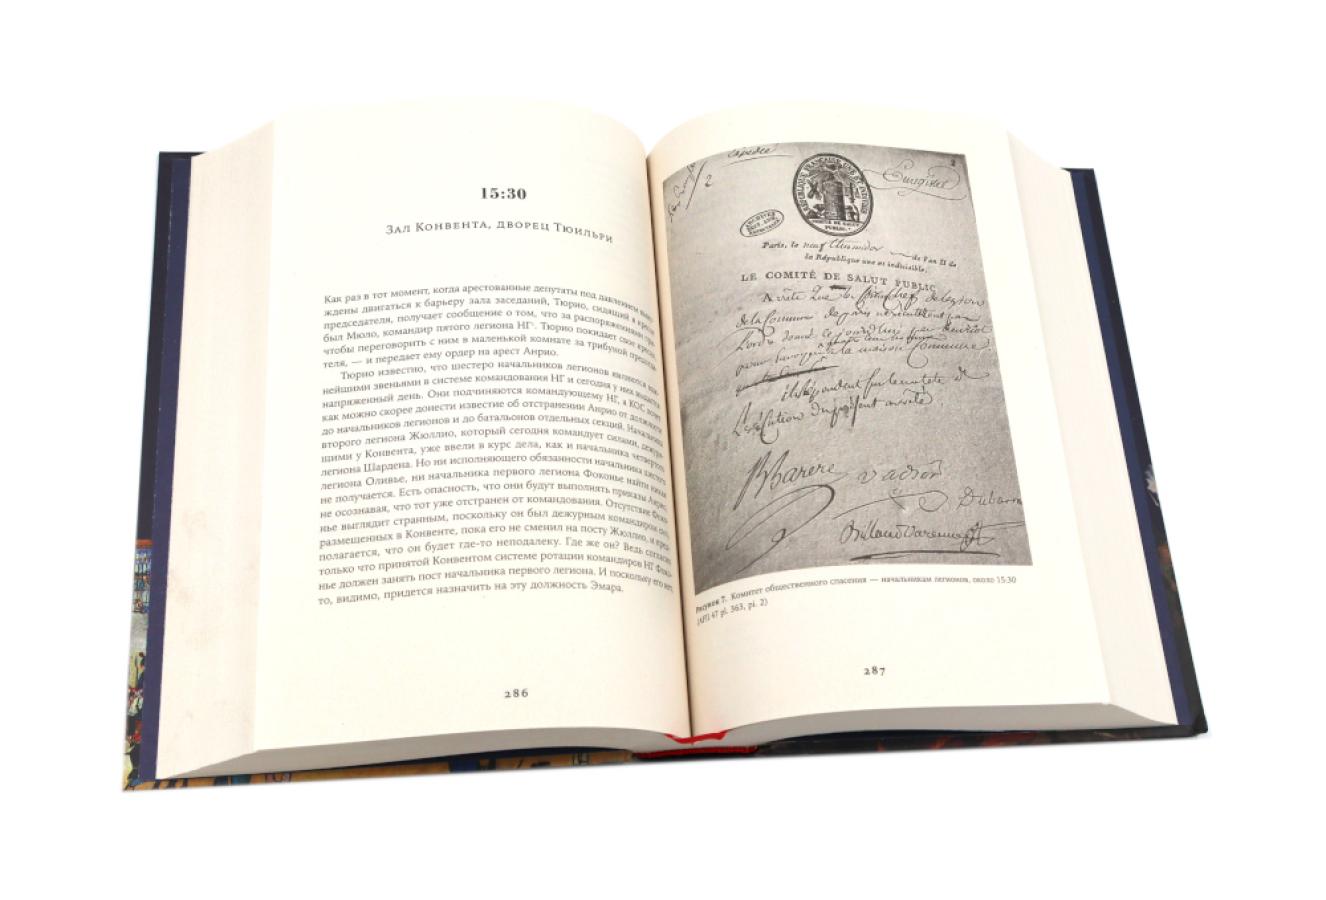 15:30
Зал Конвента, дворец Тюильри
Как раз в тот момент, когда арестованные депутаты под давлением
ждены двигаться к барьеру зала заседаний, Тюрио, сидящий в кресле
председателя, получает сообщение о том, что за распоряжениями
был Мюло, командир пятого легиона НГ. Тюрио покидает свое кресло,
чтобы переговорить с ним в маленькой комнате за трибуной председа-
теля, — и передает ему ордер на арест Анрио.
Тюрио известно, что шестеро начальников легионов являются
нейшими звеньями в системе командования НГ и сегодня у них
напряженный день. Они подчиняются командующему НГ, а КОС
как можно скорее донести известие об отстранении Анрио от должности
до начальников легионов и до батальонов отдельных секций. Начальника
второго легиона Жюллио, который сегодня командует силами, дежуря-
щими у Конвента, уже ввели в курс дела, как и начальника четвертого
легиона Шардена. Но ни исполняющего обязанности начальника шестого
легиона Оливье, ни начальника первого легиона Фоконье найти никак
не получается. Есть опасность, что они будут выполнять приказы Анрио,
не осознавая, что тот уже отстранен от командования. Отсутствие Фоко-
нье выглядит странным, поскольку он был дежурным командиром сил,
размещенных в Конвенте, пока его не сменил на посту Жюллио, и пред-
полагается, что он будет где-то неподалеку. Где же он? Ведь согласно
только что принятой Конвентом системе ротации командиров НГ Фоко-
нье должен занять пост начальника первого легиона. И поскольку его нет,
то, видимо, придется назначить на эту должность Эмара.
286
Expédiée
2
2
Enregistré
RÉPUBLIQUE FRANÇAISE UNE ET INDIVIS.
COMITÉ DE SALUT
PUBLIC.
Paris, le neuf Thermidor de l'an II de
la République une et indivisible.
LE COMITÉ DE SALUT PUBLIC
Arrête que les Chefs de légion
de la Commune de paris
la maison Commune
ils répondent sur leur tête de
L'exécution du présent arrêté
B Barere Vadier
Dubarran
Billaud Varenne
Рисунок 7. Комитет общественного спасения — начальникам легионов, около 15:30
(AFII 47 pl. 363, pi. 2)
287